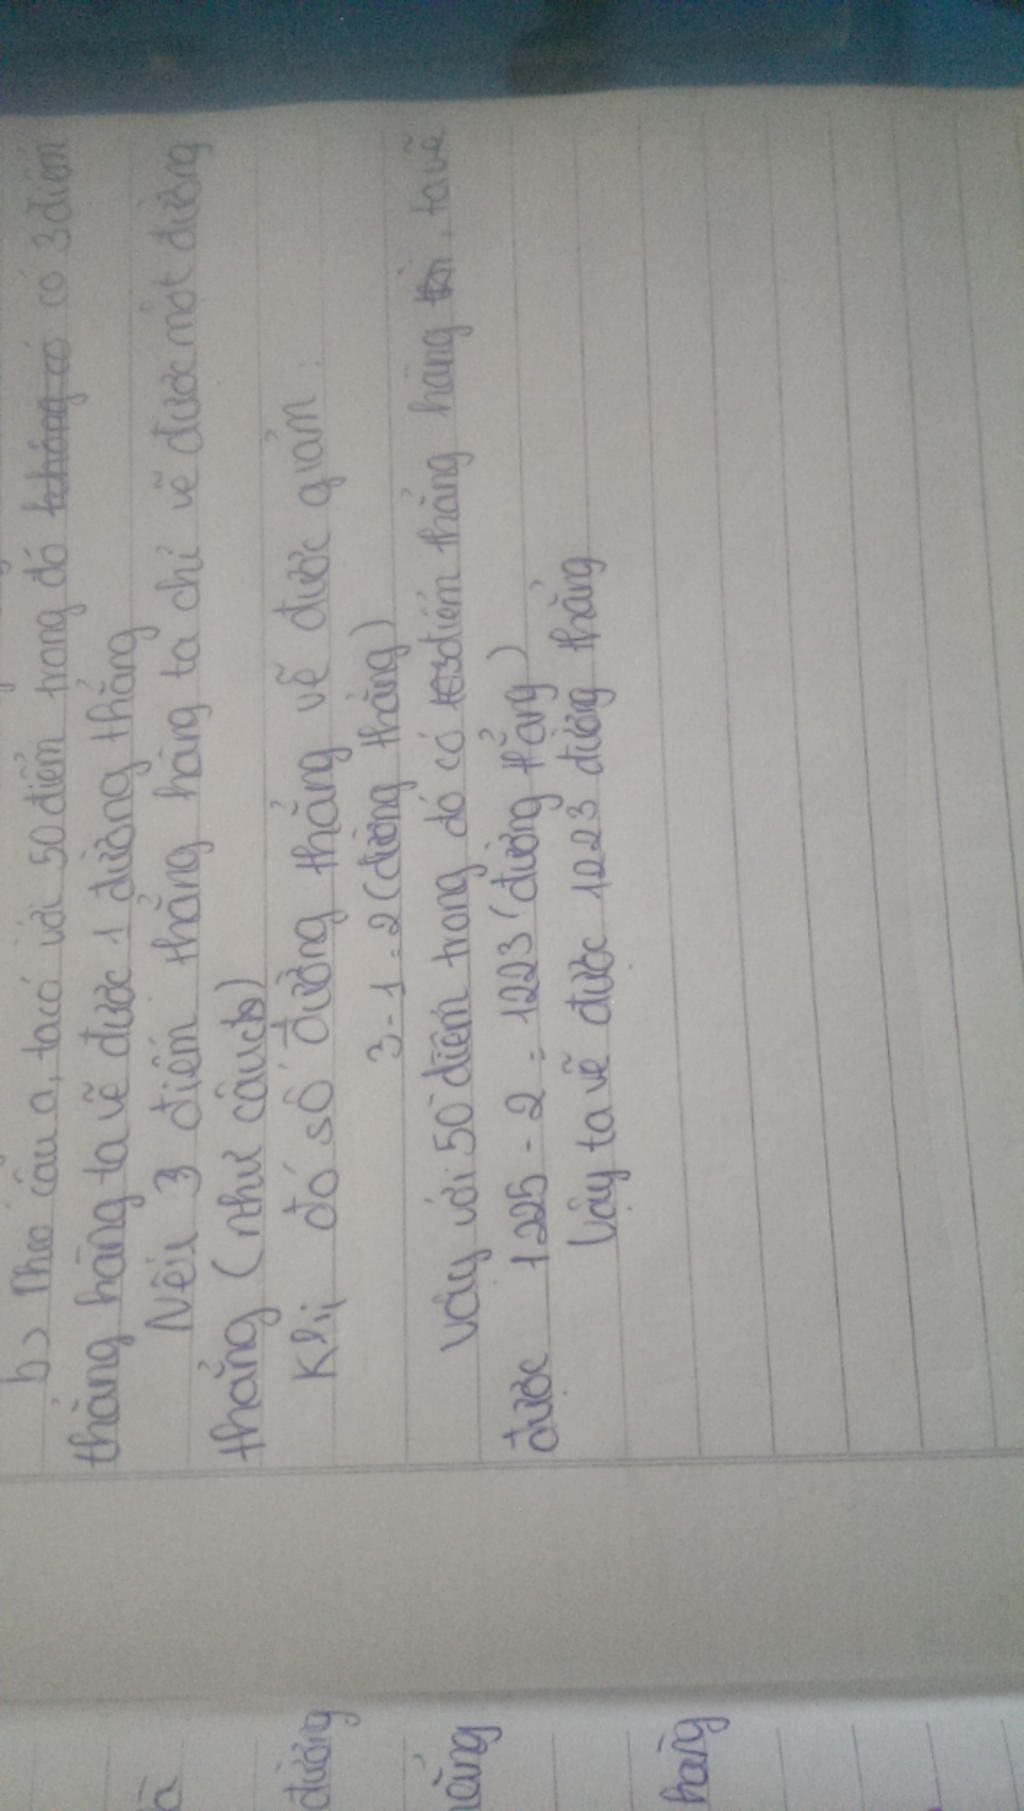 b) Theo câu a, ta có với 50 điểm trong đó có 3 điểm
thẳng hàng ta vẽ được 1 đường thẳng
Nếu 3 điểm thẳng hàng ta chỉ vẽ được một đường
thẳng (như câu b)
Khi đó số đường thẳng vẽ được giảm :
3 - 1 = 2 (đường thẳng)
Vậy với 50 điểm trong đó có 3 điểm thẳng hàng, ta vẽ
được 1225 - 2 = 1223 (đường thẳng)
Vậy ta vẽ được 1223 đường thẳng
đường
hàng